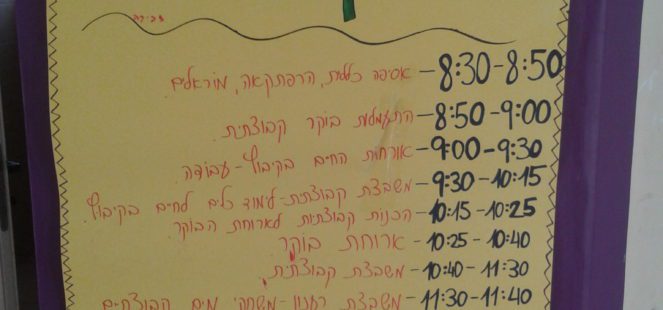 8:30-8:50 - אסיפה כללית, הרפתקאה, מוראלים
8:50-9:00 - התעמלות בוקר קבוצתית
9:00-9:30 - אורחות החיים בקיבוץ - עבודה
9:30-10:15 - משבצת קבוצתית - לימוד כלים לחיים בקיבוץ
10:15-10:25 - הכנות קבוצתיות לארוחת הבוקר
10:25-10:40 - ארוחת בוקר
10:40-11:30 - משבצת קבוצתית
11:30-11:40 - משבצת רענון - משחקי מים קבוצתיים